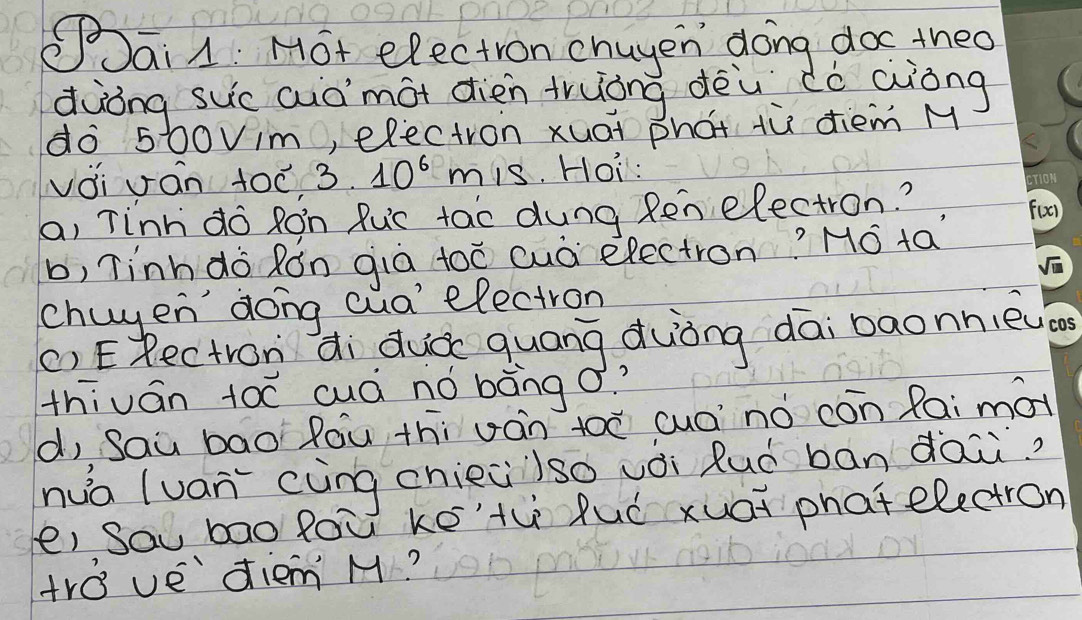 Bài 1: Một electron chuyển động dọc theo
đường sức của một điện trường đều có cường
độ 500V/m, electron xuất phát từ điểm M
với vận tốc 3.10⁶ m/s. Hỏi:
a, Tính độ lớn lực tác dụng lên electron?
b, Tính độ lớn gia tốc của electron? Mô tả
chuyển động của electron
c, Electron đi được quãng đường dài bao nhiêu
thì vận tốc của nó bằng 0?
d, Sau bao lâu thì vận tốc của nó còn lại một
nửa (vẫn cùng chiều) so với lúc ban đầu?
e, Sau bao lâu kể từ lúc xuất phát electron
trở về điểm M?
CTION
f(x)
cos